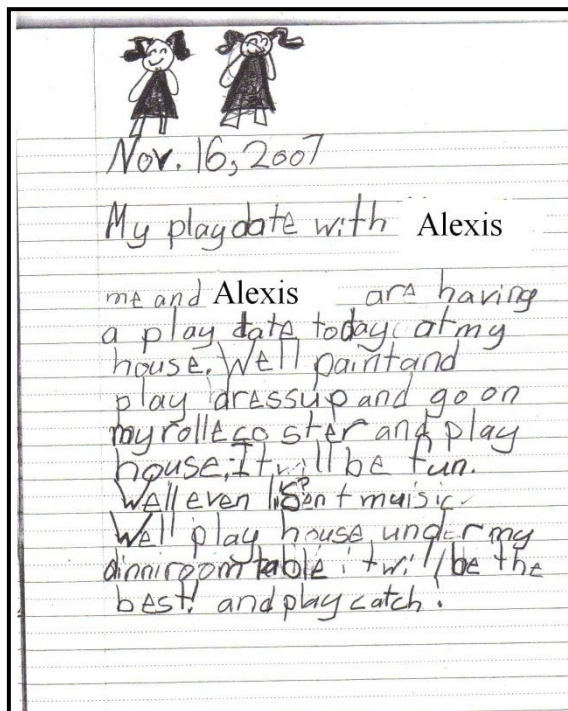 Nov. 16, 2007
My playdate with Alexis
me and Alexis are having
a play date today at my
house. Well paint and
play dressup and go on
my rolleco ster and play
house. It will be fun.
Well even lisent muisic.
Well play house under my
dinniroom table it will be the
best! and play catch.